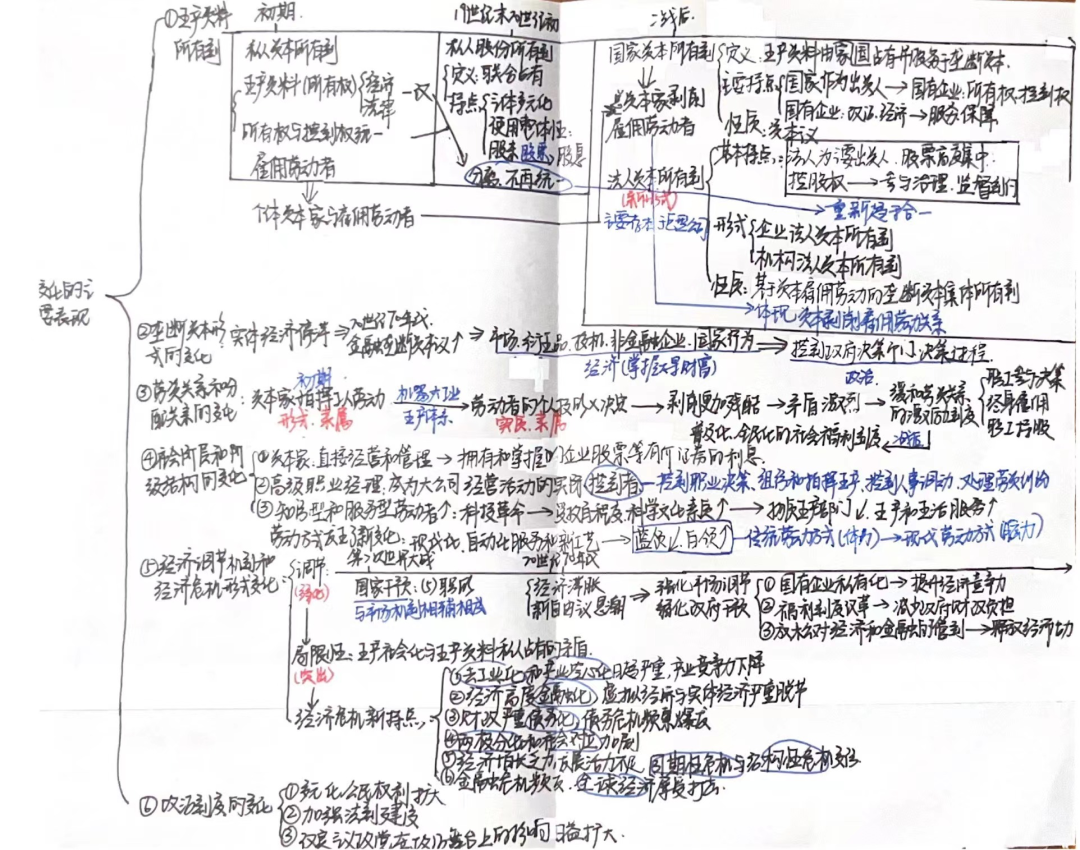 ①生产资料 初期. 19世纪末20世纪初 二战后
所有制
私人资本所有制
生产资料(所有权) 经济 法律
所有权与控制权统一
雇佣劳动者
个体资本家与雇佣劳动者
私人股份所有制
定义:联合占有
特点 主体多元化
使用整体性:
股东 股票 股息
分离.不再统一
国家资本所有制
定义:生产资料由国家占有并服务于垄断资本.
主要特点 国家作为出资人→国有企业:所有权.控制权
国有企业:政治.经济→服务.保障
性质:资本主义
资本家剥削
雇佣劳动者
法人资本所有制
(新形式)
基本特点:法人为主要出资人.股票高度集中.
控股权→参与治理.监督部门
重新趋于合一
形式 企业法人资本所有制
机构法人资本所有制
性质:基于资本雇佣劳动的垄断资本集体所有制
体现资本剥削雇佣劳动关系
变化的主要表现
②垄断资本形式的变化 实体经济停滞→20世纪70年代.金融垄断资本↑→市场.非金融企业.国家行为→控制政府决策部门.决策过程.
经济(掌握大量财富) 政治.
③劳资关系和分配关系的变化 初期 资本家指挥工人劳动 机器大工业 生产体系→劳动者的个人→剥削更加残酷→矛盾激烈→缓和劳资关系的激励制度 职工参与决策
形式.隶属 实际.隶属 终身雇佣
职工持股
普及化.全民化的社会福利制度
④社会阶层和阶级结构的变化 ①资本家:直接经营和管理→拥有和掌握的企业股票等有价证券的利息.
②高级职业经理:成为大公司经营活动的实际控制者
③知识型和服务型劳动者↑:科技革命→受教育程度.科学文化素质↑→物质生产部门↓.生产和生活服务↑
劳动方式发生了新变化:现代化.自动化→蓝领↓.白领↑—传统劳动方式(体力)→现代劳动方式(脑力)
⑤经济调节机制和经济危机形式变化: 调节: 第二次世界大战 20世纪70年代
(强化) 国家干预:
与市场机制相辅相成
经济滞胀
新自由主义思潮
强化市场调节
弱化政府干预
①国有企业私有化→提升经济竞争力
②福利制度改革→减少政府财政负担
③放松对经济和金融的管制→释放经济活力
局限性:生产社会化与生产资料私人占有的矛盾.
(突出)
经济危机新特点:
①去工业化和产业空心化日趋严重.产业竞争力下降
②经济高度金融化,虚拟经济与实体经济严重脱节
③财政严重债务化,债务危机频繁爆发
④两极分化和社会对立加剧
⑤经济增长乏力.发展活力不足,周期性危机与结构性危机交织
⑥金融危机频发.全球经济屡受打击.
⑥政治制度的变化
①多元化.公民权利扩大
②加强法制建设
③改良主义政党在政治舞台上的影响日益扩大.